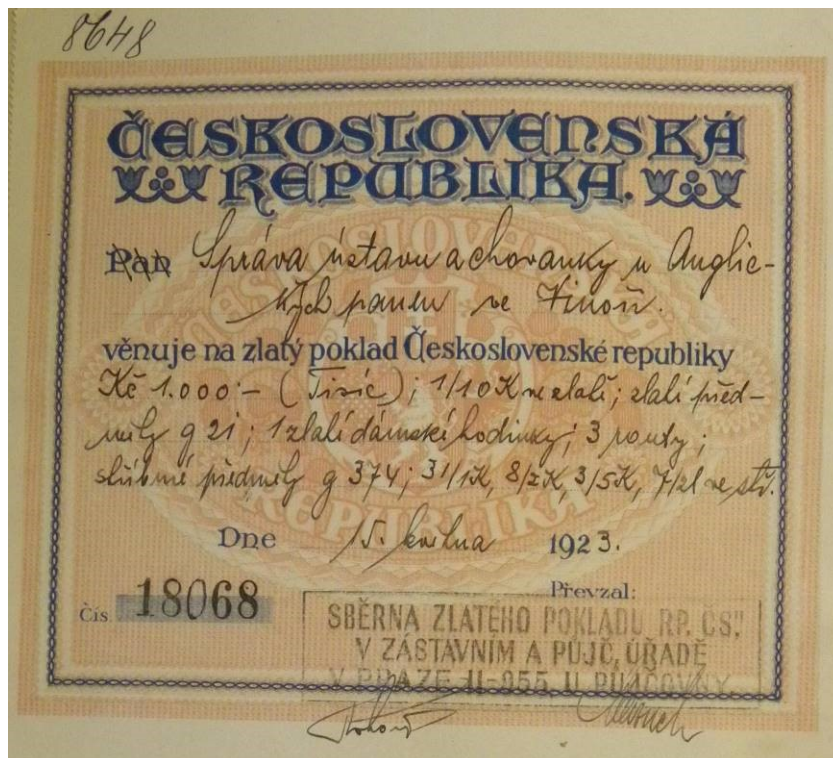 8648
ČESKOSLOVENSKÁ
REPUBLIKA.
Pan Správa ústavu a chovanky u Anglic-
kých panen ve Vinoři.
věnuje na zlatý poklad Československé republiky
Kč 1.000·- (Tisíc); 1/10 K ve zlatě; zlaté před-
měty g 21; 1 zlaté dámské hodinky; 3 routy;
stříbrné předměty g 374; 31/1K, 8/2K, 3/5K, 7/zl ve stř.
Dne 15. května 1923.
Převzal:
Čís. 18068
SBĚRNA ZLATÉHO POKLADU RP. ČS."
V ZÁSTAVNÍM A PŮJČ. ÚŘADĚ
V PRAZE II-955, II. PŮJČOVNY.
ČESKOSLOVENSKÁ
REPUBLIKA